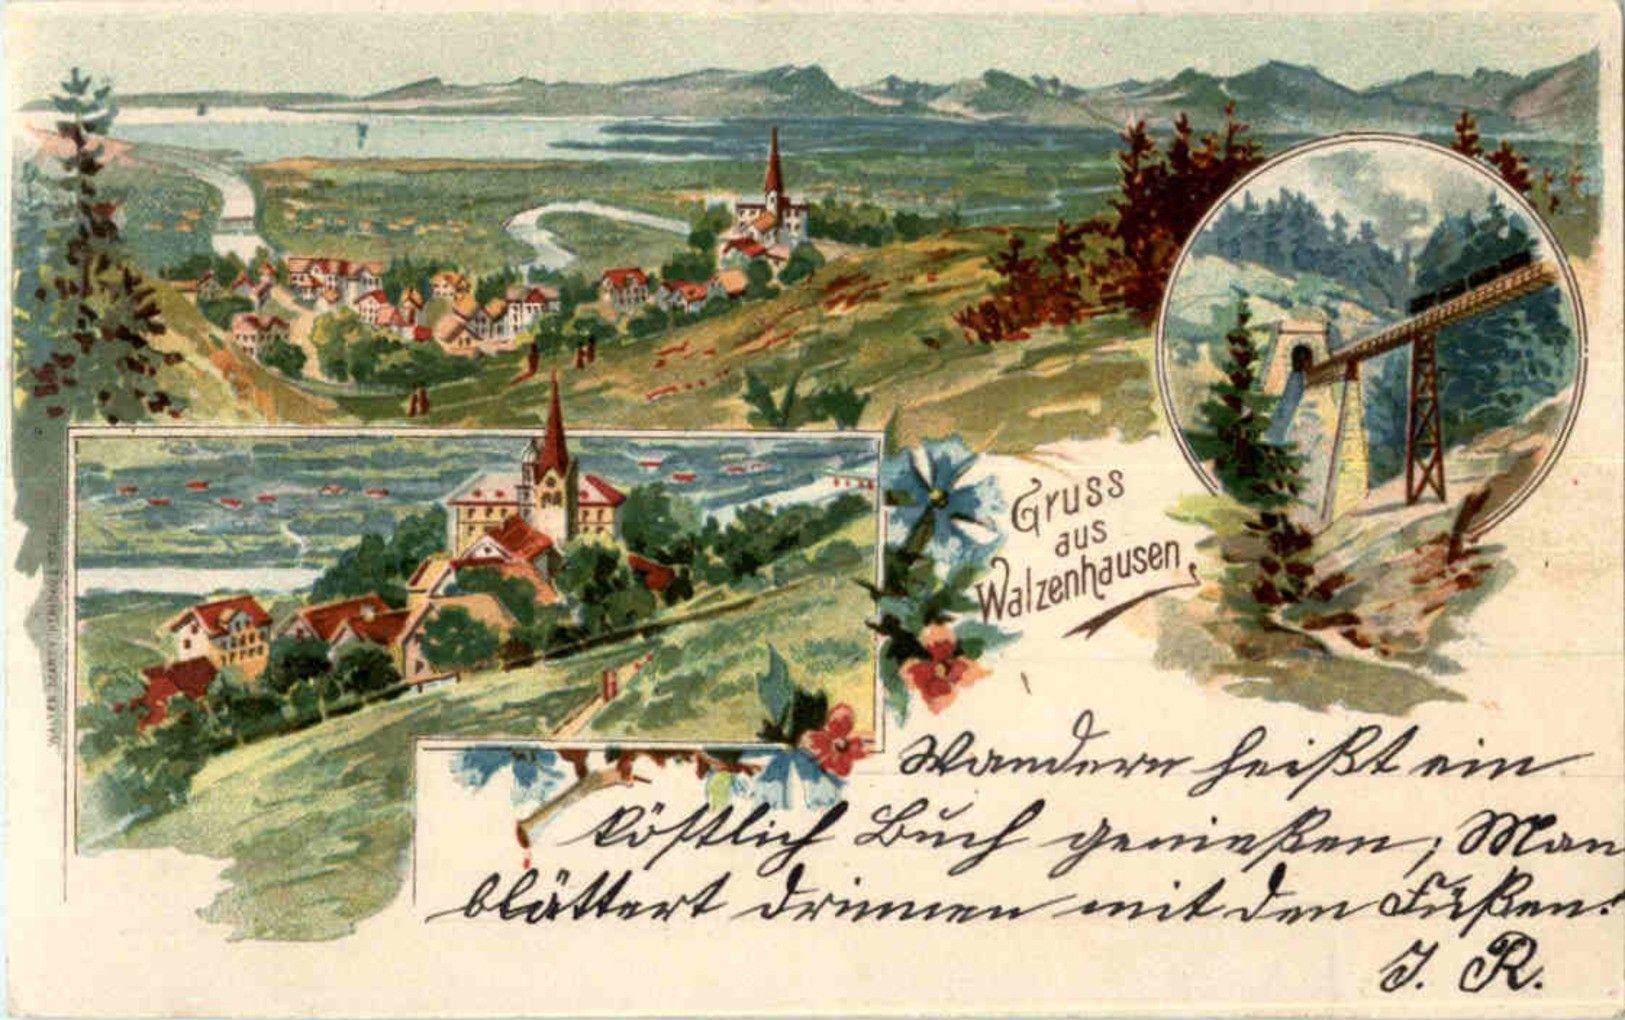 Gruss
aus
Walzenhausen
Wandern heißt ein
köstlich Buch genießen; Man
blättert drinnen mit den Füßen!
J. R.
WALTER MARTY, HERISAU